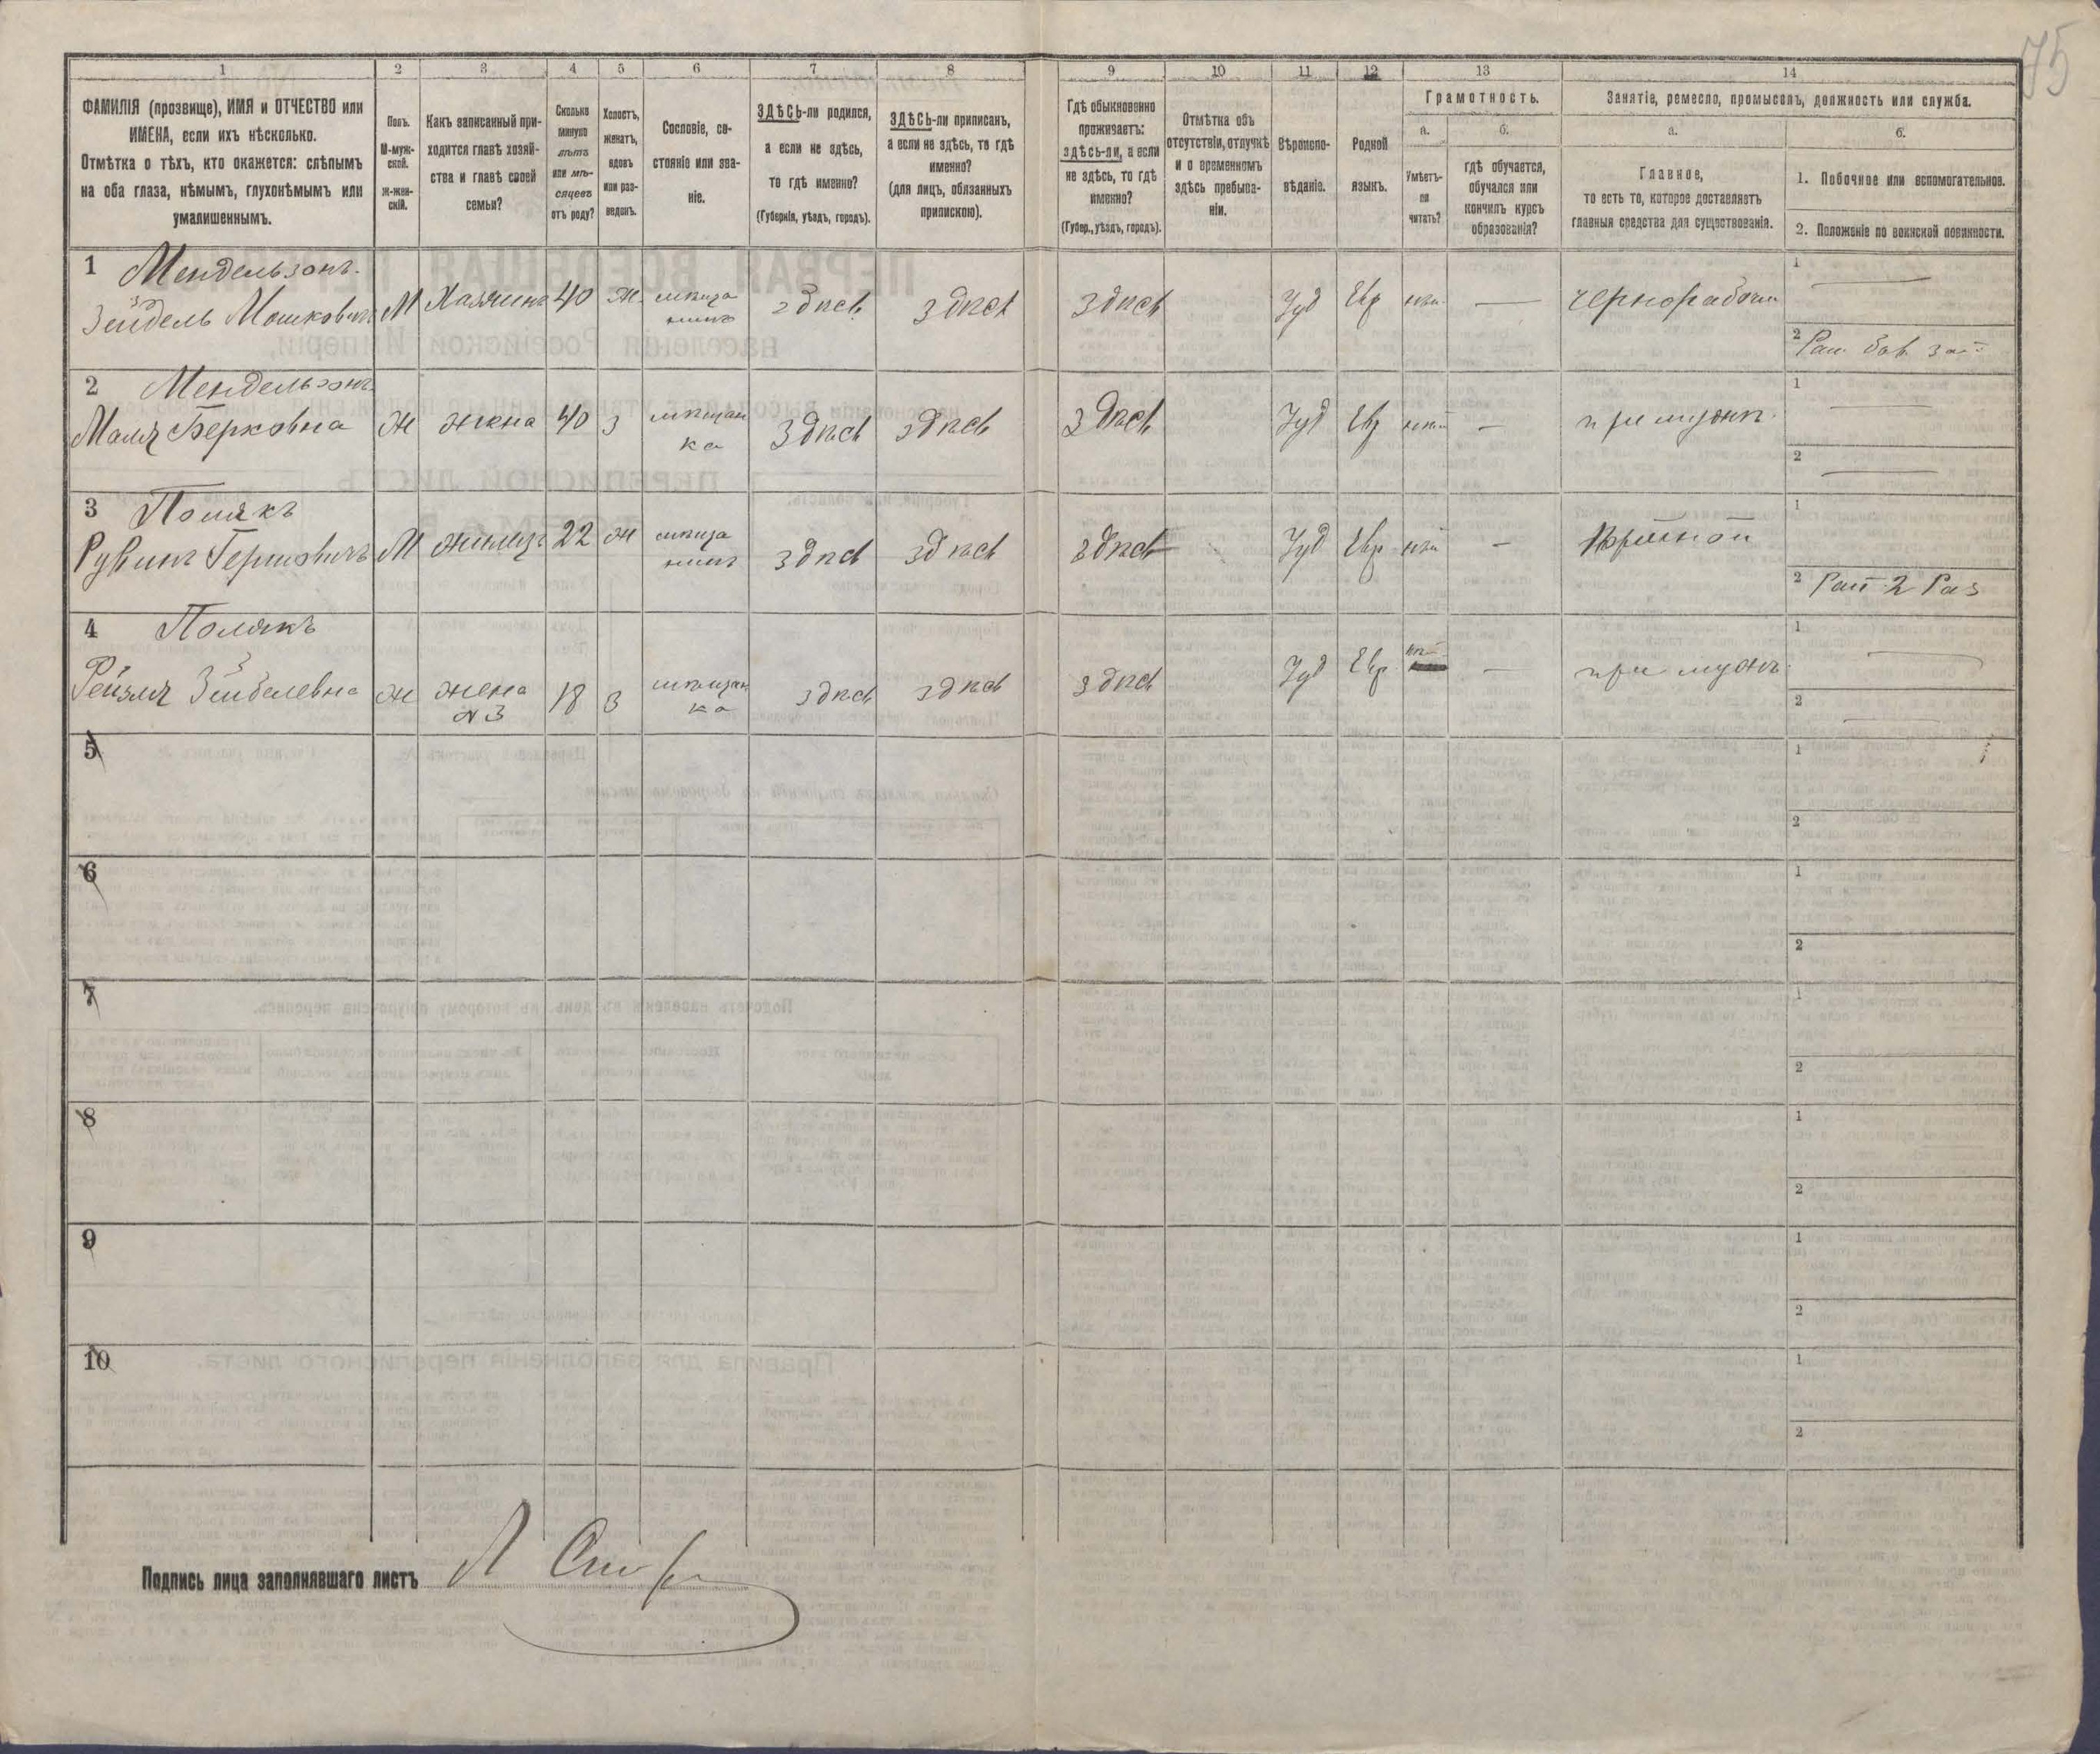 75
1 2 3 4 5 6 7 8 9 10 11 12 13 14
ФАМИЛІЯ (прозвище), ИМЯ и ОТЧЕСТВО или
ИМЕНА, если ихъ нѣсколько.
Отмѣтка о тѣхъ, кто окажется: слѣпымъ
на оба глаза, нѣмымъ, глухонѣмымъ или
умалишеннымъ.
Полъ.
М-муж-
ской.
ж-жен-
скій.
Какъ записанный при-
ходится главѣ хозяй-
ства и главѣ своей
семьи?
Сколько
минуло
лѣтъ
или мѣ-
сяцевъ
отъ роду?
Холостъ,
женатъ,
вдовъ
или раз-
веденъ.
Сословіе, со-
стояніе или зва-
ніе.
ЗДѢСЬ-ли родился,
а если не здѣсь,
то гдѣ именно?
(Губернія, уѣздъ, городъ).
ЗДѢСЬ-ли приписанъ,
а если не здѣсь, то гдѣ
именно?
(для лицъ, обязанныхъ
припискою).
Гдѣ обыкновенно
проживаетъ:
здѣсь-ли, а если
не здѣсь, то гдѣ
именно?
(Губер., уѣздъ, городъ).
Отмѣтка объ
отсутствіи, отлучкѣ
и о временномъ
здѣсь пребыва-
ніи.
Вѣроиспо-
вѣданіе.
Родной
языкъ.
Грамотность.
а.
Умѣетъ-
ли
читать?
б.
гдѣ обучается,
обучался или
кончилъ курсъ
образованія?
Занятіе, ремесло, промыселъ, должность или служба.
а.
Главное,
то есть то, которое доставляетъ
главныя средства для существованія.
б.
1. Побочное или вспомогательное.
2. Положеніе по воинской повинности.
1 Мендельзонъ
Зейдель Мошковичъ М Хазяинъ 40 Ж мѣща здѣсь здѣсь здѣсь Іуд Евр — чернорабочій 1 —
нинъ
2
2 Мендельзонъ
Маля Берковна Ж жена 40 З мѣщан здѣсь здѣсь здѣсь Іуд Евр — при мужѣ 1 —
ка
2 —
3 Полякъ
Рувинъ Гершовичъ М жилецъ 22 Ж мѣща здѣсь здѣсь здѣсь Іуд Евр — Портной 1
нинъ
2 Рат 2 Раз
4 Полякъ
Рейзля Зейделевна Ж жена 18 З мѣщан здѣсь здѣсь здѣсь Іуд Евр — при мужѣ 1 —
N 3 ка
2 —
5 1
2
6 1
2
7 1
2
8 1
2
9 1
2
10 1
2
Подпись лица заполнявшаго листъ